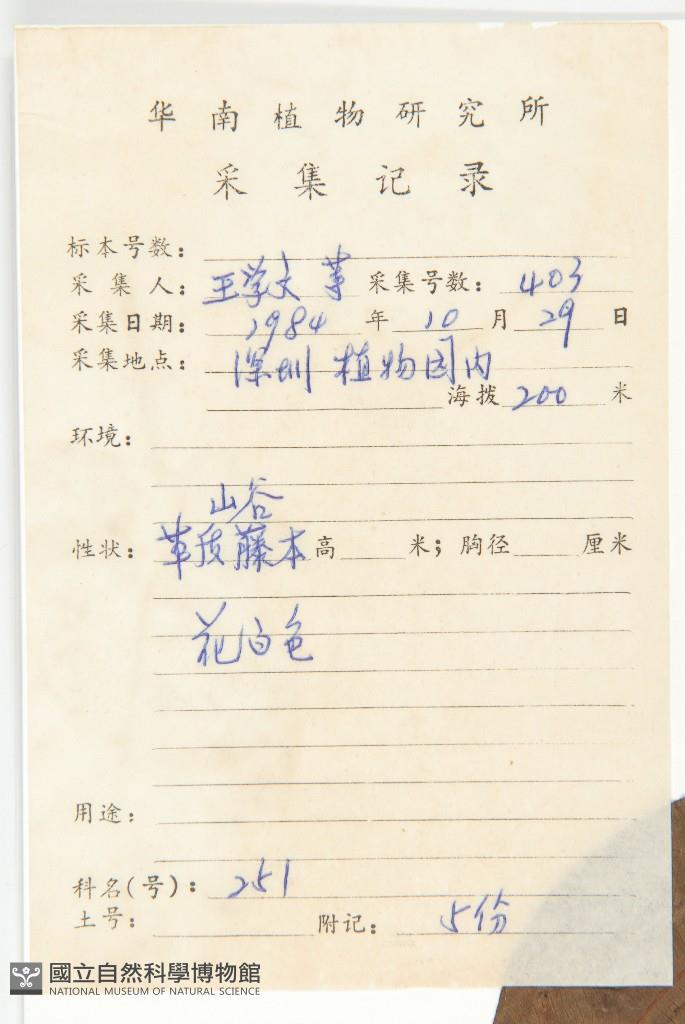 华南植物研究所
采集记录
标本号数:
采集人: 王学文 等 采集号数: 403
采集日期: 1984 年 10 月 29 日
采集地点: 深圳 植物园内
海拨 200 米
环境:
山谷
性状: 草质藤本 高 米; 胸径 厘米
花白色
用途:
科名(号): 251
土号: 附记: 5份
國立自然科學博物館
NATIONAL MUSEUM OF NATURAL SCIENCE